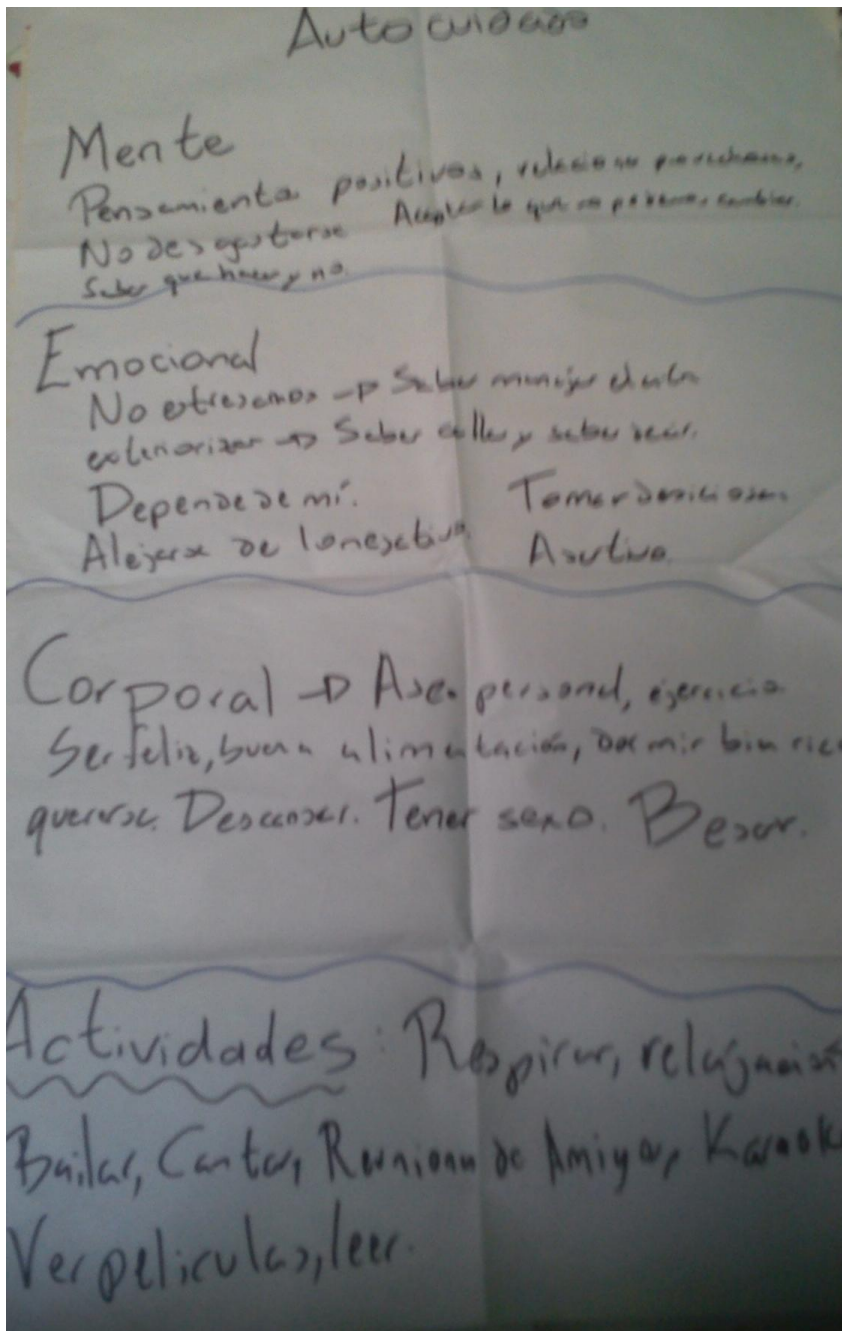 Autocuidado
Mente
Pensamienta positivos, relaciones provechosas,
No desgastarse Aceptar lo que no podemos cambiar.
Saber que hacer y no.
Emocional
No estresarnos → Saber manejar
exteriorizar → Saber callar y saber decir.
Depende de mí. Tomar desiciones.
Alejarse de lo negativo. Asertivo.
Corporal → Aseo personal, ejercicio
Ser feliz, buena alimentación, dormir bien rico
quererse. Descansar. Tener sexo. Besar.
Actividades: Respirar, relajación
Bailar, Cantar, Reunione de Amigos, Karaok
Ver peliculas, leer.